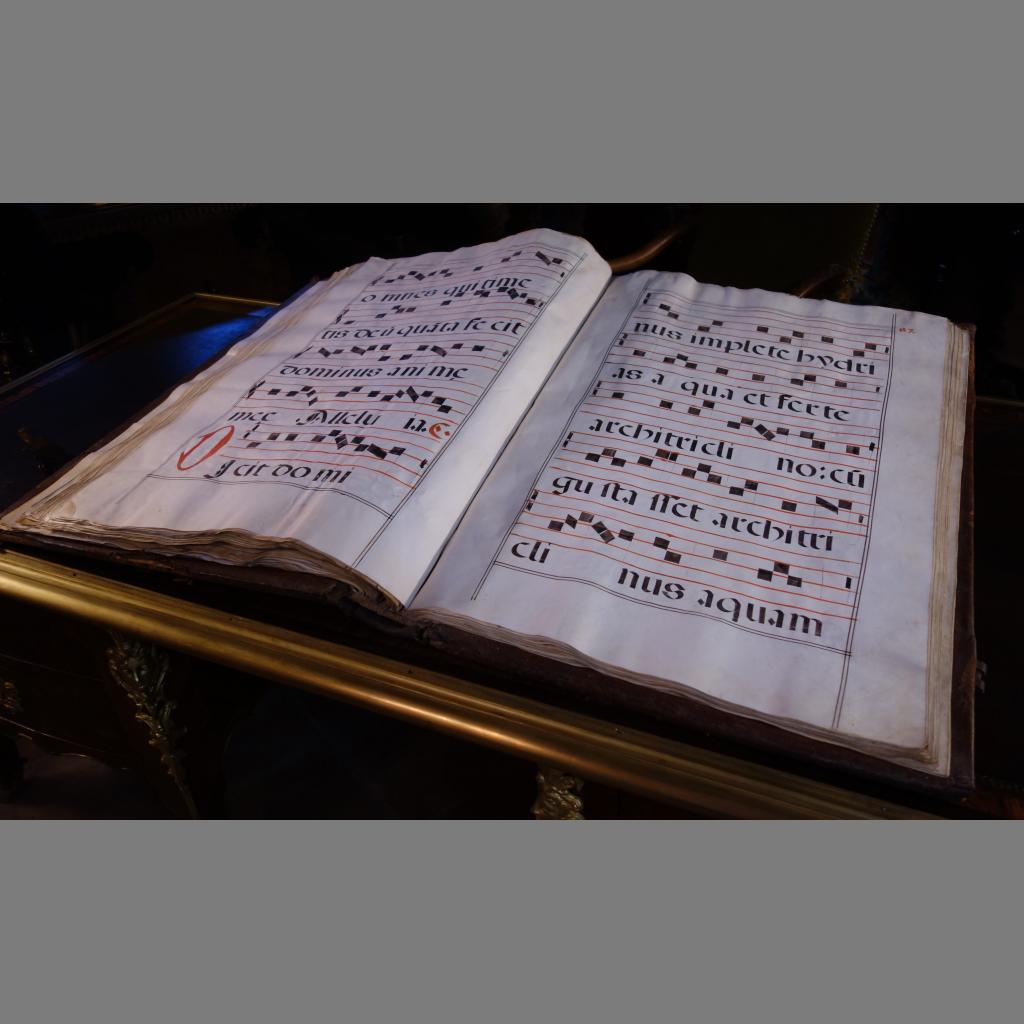 o mnes qui time
tis deū quāta fe cit
dominus ani mę
meę Allelu ia. C.
D
icit do mi
87.
nus implete hydri
as a qua et ferte
architricli no: cū
gu sta sset architri
cli nus aquam